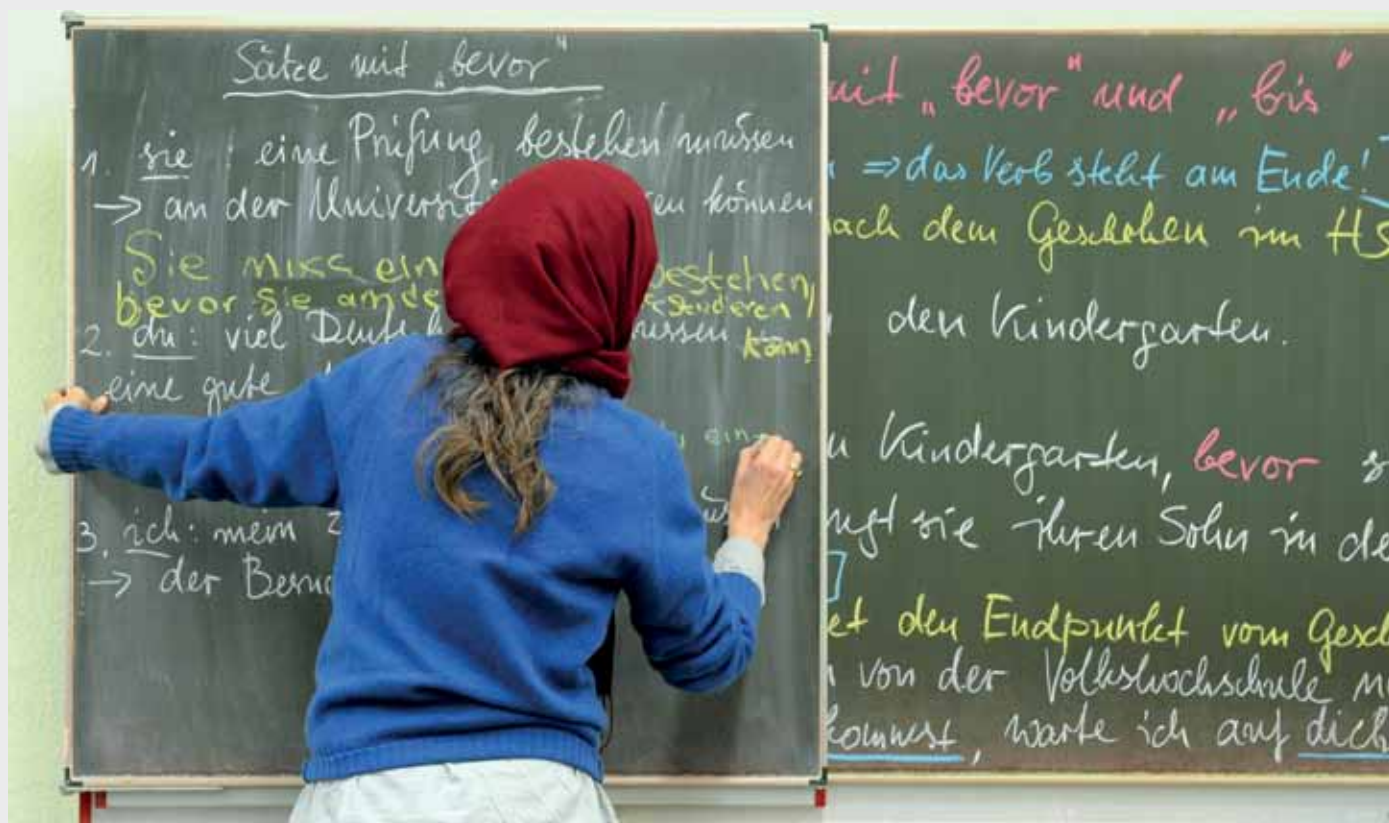 Sätze mit „bevor"
1. sie : eine Prüfung bestehen müssen
→ an der Universit ren können
Sie miss ein bestehen,
bevor sie an de studeren
kann
2. du: viel Deuts üssen
eine gute
du ein
3. ich: mein
→ der Beru
mit „bevor" und „bis"
⇒ das Verb steht am Ende!
nach dem Geschehen im HS
den Kindergarten.
Kindergarten, bevor s
ngt sie ihren Sohn in de
et den Endpunkt vom Gesch
von der Volkshochschule
kommst, warte ich auf dich